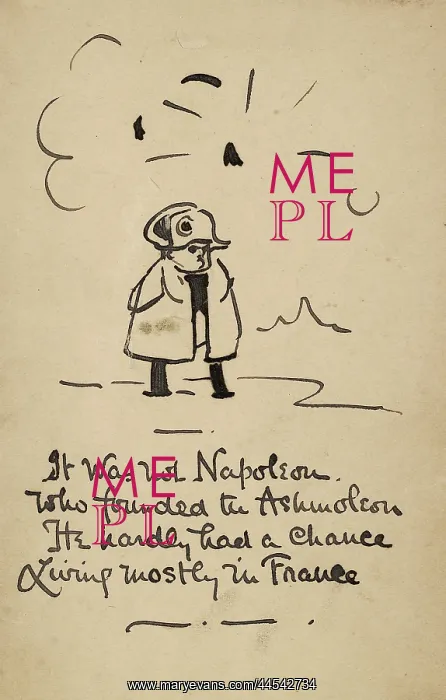 ME
PL
It was not Napoleon.
Who founded the Ashmoleon
He hardly had a Chance
Living mostly in France
ME
PL
www.maryevans.com/44542734